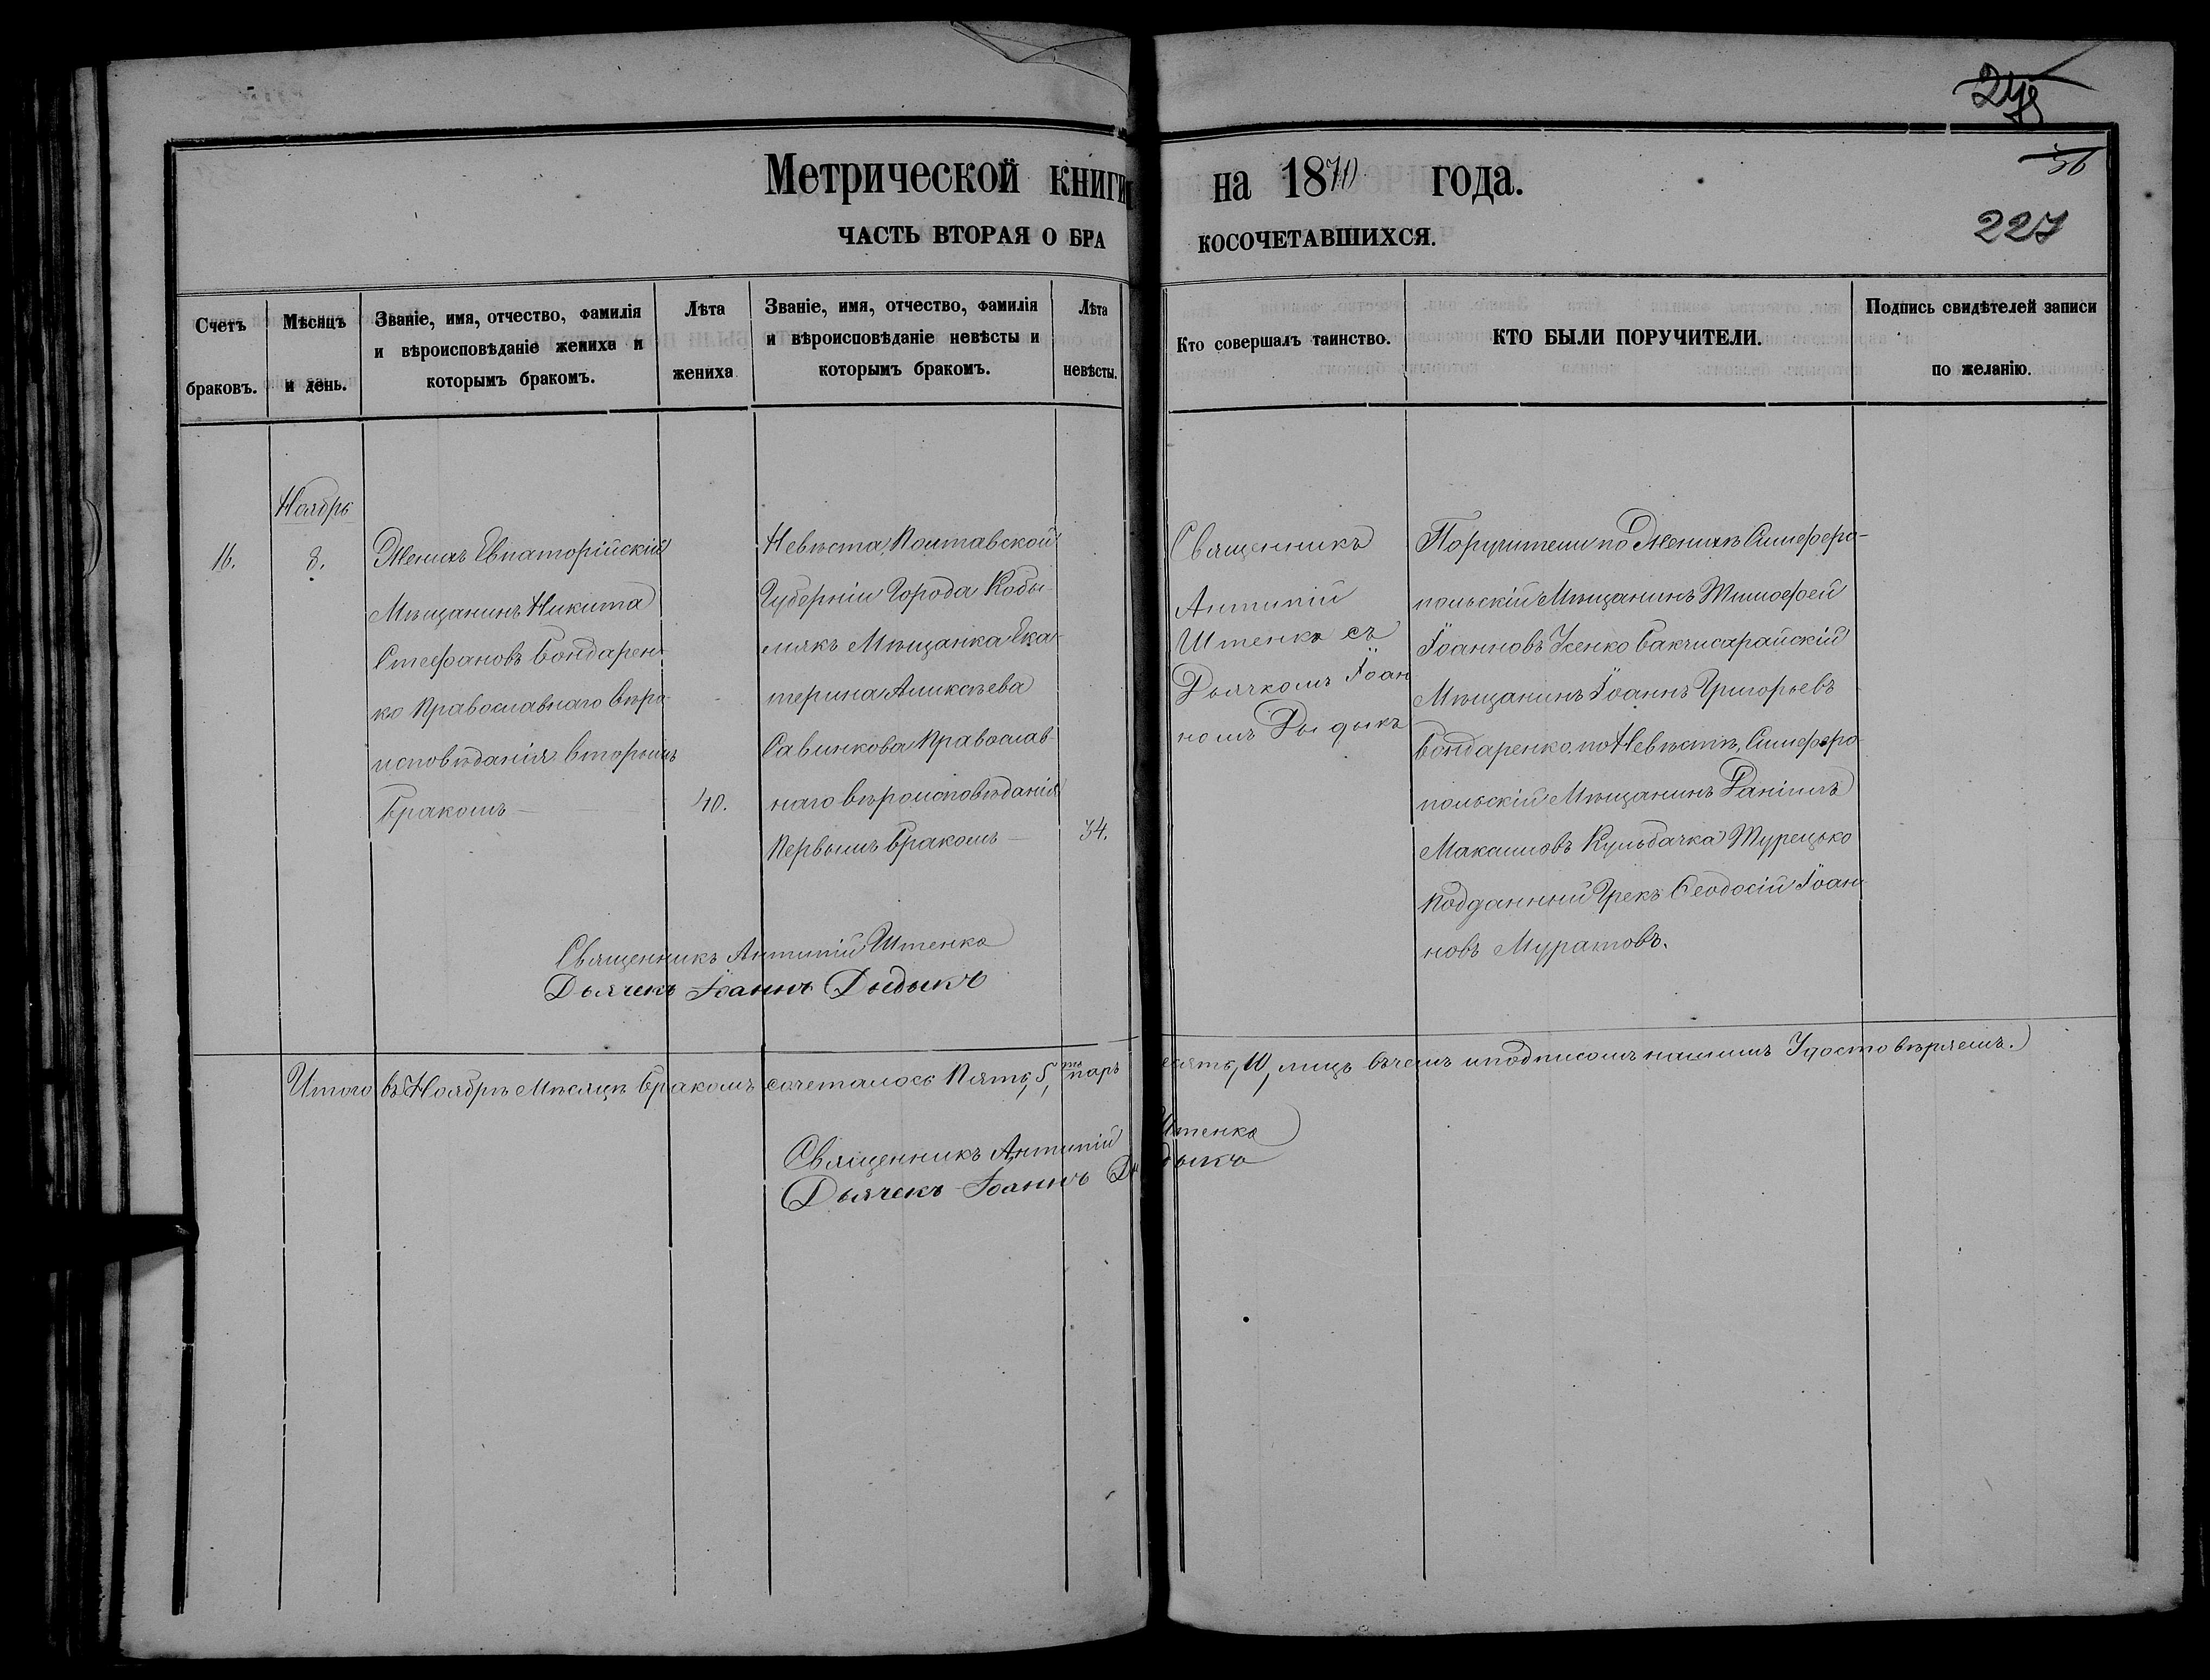 278
36
227
Метрической книги на 1870 года.
ЧАСТЬ ВТОРАЯ О БРАКОСОЧЕТАВШИХСЯ.
Счетъ браковъ.
Мѣсяцъ и день.
Званіе, имя, отчество, фамилія
и вѣроисповѣданіе жениха и
которымъ бракомъ.
Лѣта
жениха
Званіе, имя, отчество, фамилія
и вѣроисповѣданіе невѣсты и
которымъ бракомъ.
Лѣта
невѣсты.
Кто совершалъ таинство.
КТО БЫЛИ ПОРУЧИТЕЛИ.
Подпись свидѣтелей записи
по желанію.
Ноябрь
16.
8.
Женихъ Евпаторійскій
Мѣщанинъ Никита
Стефановъ Бондарен
ко Православнаго вѣро
исповѣданія вторымъ
бракомъ
40.
Невѣста Полтавской
Губерніи Города Кобы-
лякъ Мѣщанка Ека-
терина Аликсѣева
Савинкова Православ-
наго вѣроисповѣданія
Первымъ бракомъ
34.
Священникъ
Антипій
Штенко съ
Дьячкомъ Іоан
номъ Дыдыкъ
Поручители по Женихѣ Симферо-
польскій Мѣщанинъ Тимофей
Іоанновъ Усенко Бакчисарайскій
Мѣщанинъ Іоаннъ Григорьевъ
Бондаренко. по Невѣстѣ, Симферо-
польскій Мѣщанинъ Даніилъ
Максимовъ Кульбачка Турецько
Подданний Грекъ Феодосій Іоан-
новъ Муратовъ.
Священникъ Антипій Штенко
Дьячекъ Іоаннъ Дыдыкъ
Итого въ Ноябрѣ Мѣсяцѣ бракомъ сочеталось Пять, 5, паръ есять, 10, лицъ въ чемъ и подписомъ нашимъ Удостовѣряемъ.
Священникъ Антипій Штенко
Дьячекъ Іоаннъ Дыдыкъ